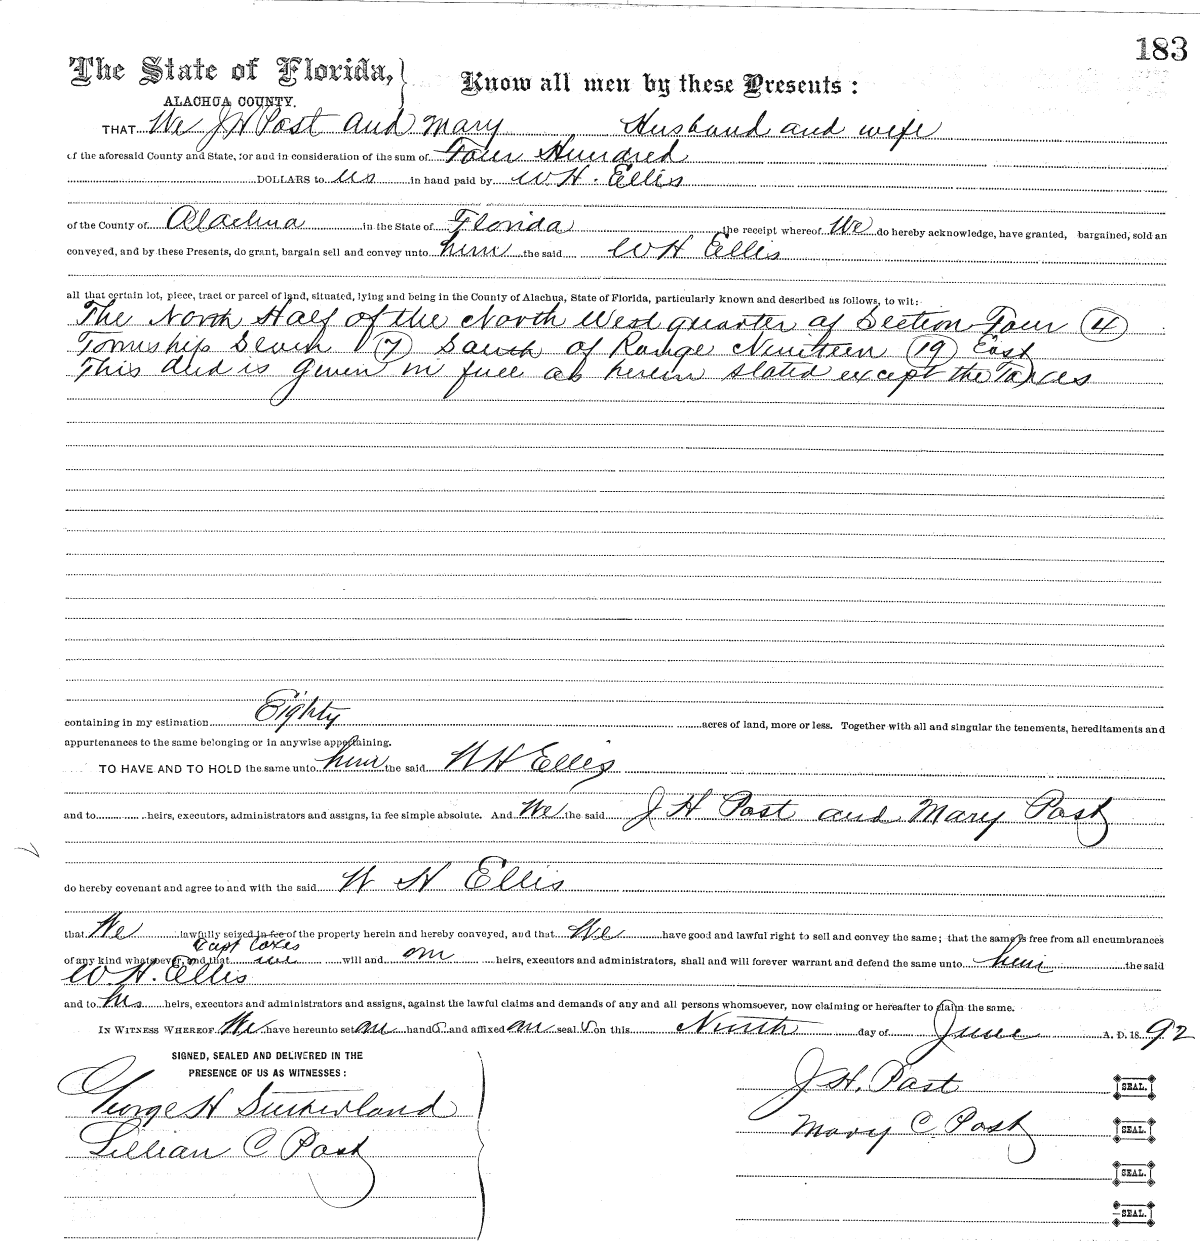 183
The State of Florida,
ALACHUA COUNTY.
Know all men by these Presents:
THAT We J H Post and Mary Husband and wife
of the aforesaid County and State, for and in consideration of the sum of Four Hundred
DOLLARS to us in hand paid by W H. Ellis
of the County of Alachua in the State of Florida the receipt whereof We do hereby acknowledge, have granted, bargained, sold an
conveyed, and by these Presents, do grant, bargain sell and convey unto him the said W H Ellis
all that certain lot, piece, tract or parcel of land, situated, lying and being in the County of Alachua, State of Florida, particularly known and described as follows, to wit:
The North Half of the North West quarter of Section Four (4)
Township Seven (7) South of Range Nineteen (19) East
This deed is given in full as herein stated except the Taxes
containing in my estimation Eighty acres of land, more or less. Together with all and singular the tenements, hereditaments and
appurtenances to the same belonging or in anywise appertaining.
TO HAVE AND TO HOLD the same unto him the said W H Ellis
and to heirs, executors, administrators and assigns, in fee simple absolute. And We the said J H Post and Mary Post
do hereby covenant and agree to and with the said W H Ellis
that We lawfully seized in fee of the property herein and hereby conveyed, and that We have good and lawful right to sell and convey the same; that the same is free from all encumbrances
Exept taxes
of any kind whatsoever, and that we will and our heirs, executors and administrators, shall and will forever warrant and defend the same unto him the said
W. H. Ellis
and to his heirs, executors and administrators and assigns, against the lawful claims and demands of any and all persons whomsoever, now claiming or hereafter to claim the same.
IN WITNESS WHEREOF, We have hereunto set our hands and affixed our seals on this Ninth day of June A. D. 1892
SIGNED, SEALED AND DELIVERED IN THE
PRESENCE OF US AS WITNESSES:
George H Sutherland
Lillian C Post
J. H. Post SEAL.
Mary C. Post SEAL.
SEAL.
SEAL.